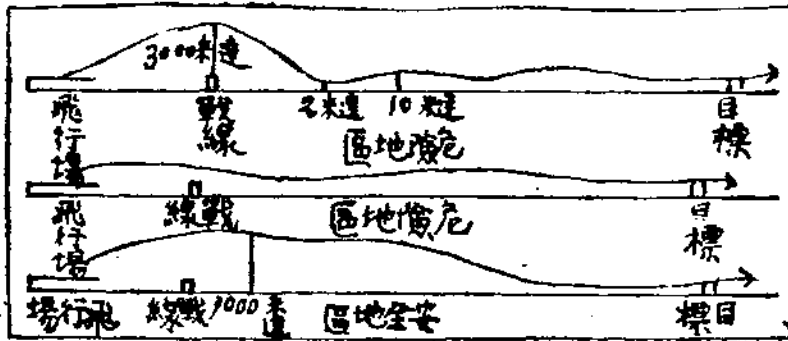 3000米達
飛行場
戰線
2米達
10米達
目標
區地險危
飛行場
線戰
區地險危
目標
場行飛
線戰
3000米達
區地全安
標目